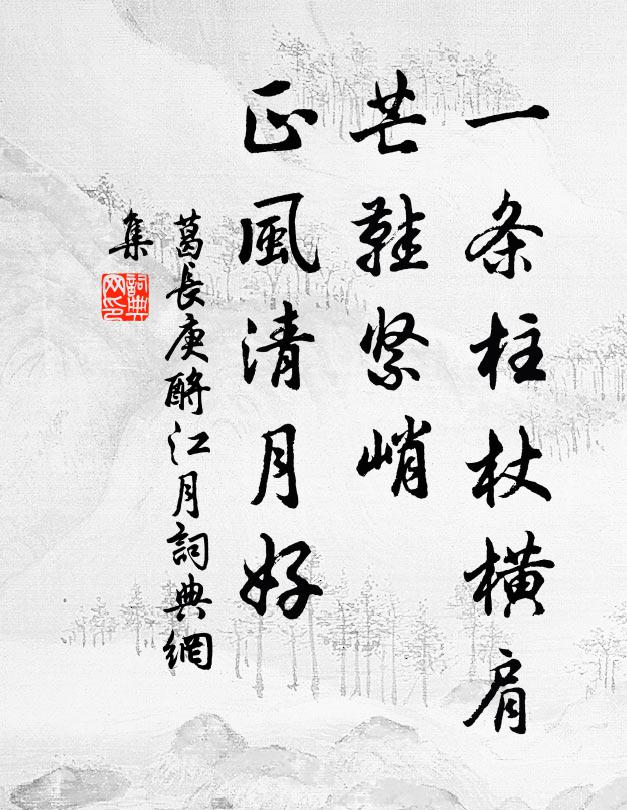 一条柱杖横肩
芒鞋紧峭
正風清月好
葛長庚酹江月詞典網
集
詞典
网印